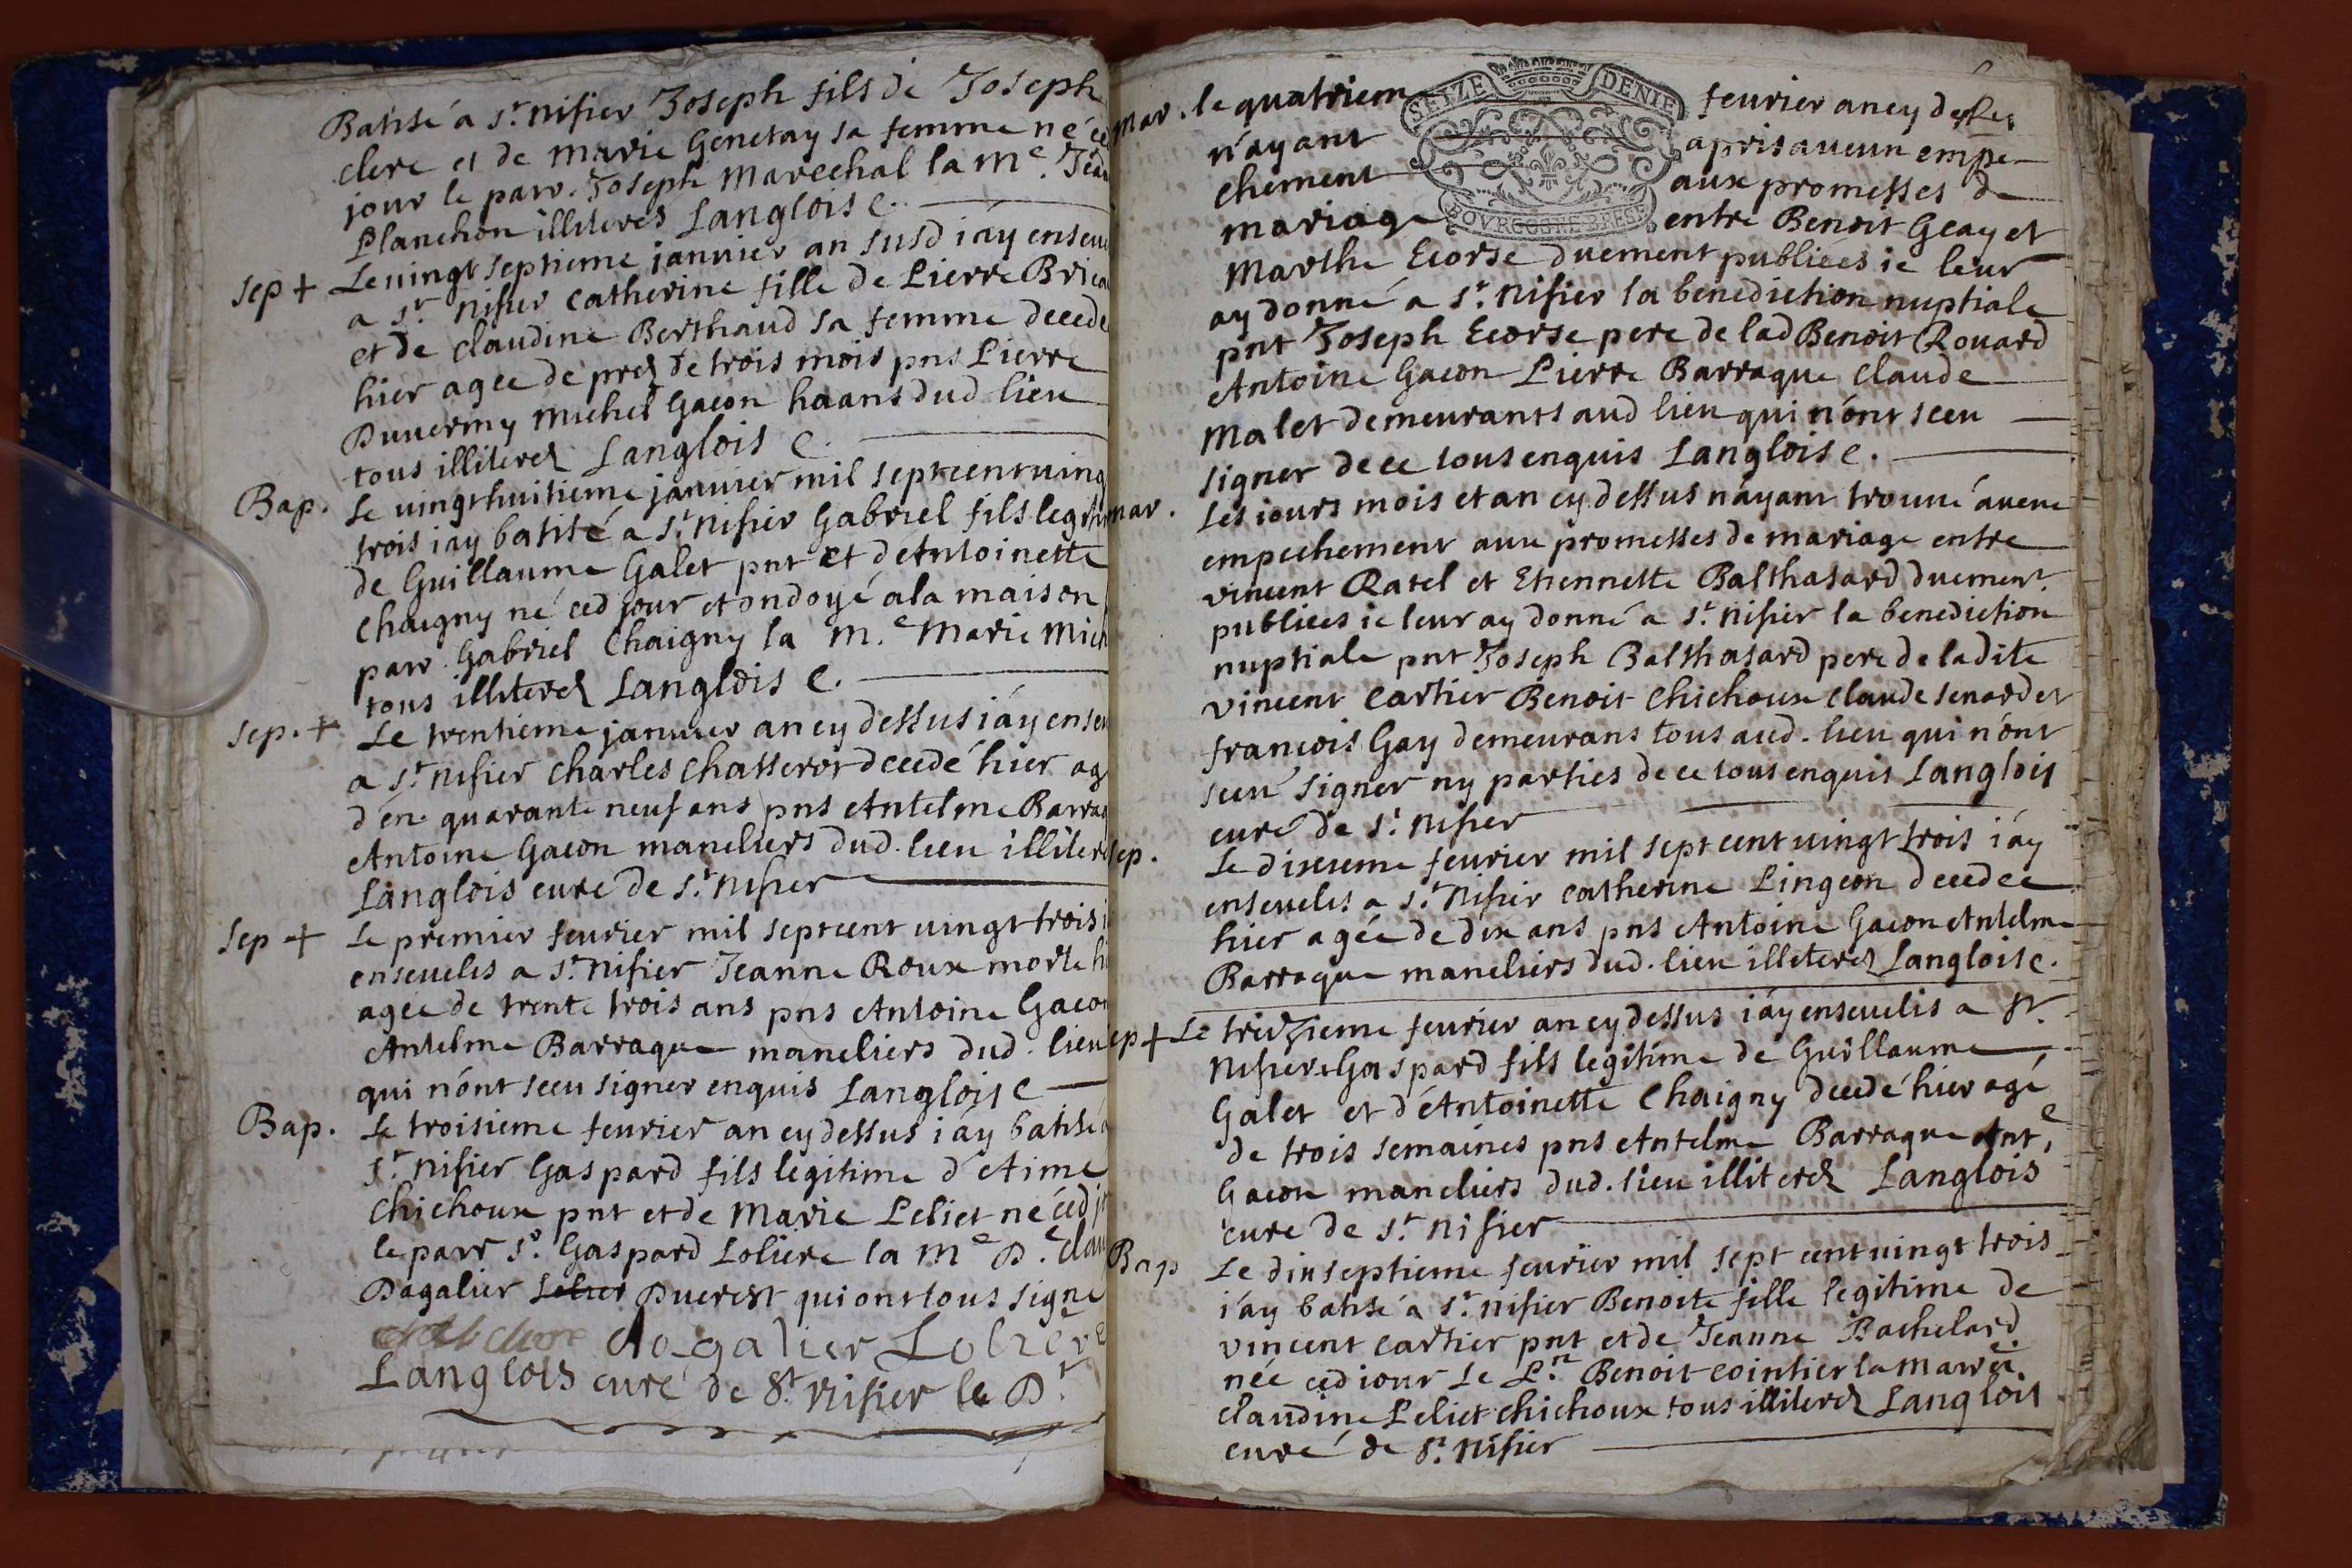 Batisé a St. Nisier Joseph fils de Joseph
clere et de Marie Genetay sa femme né
jour le parr. Joseph Marechal la Me.
Planchon illiteres Langlois C.
sep + Le vingt septieme janvier an susd iáy
a St Nisier Catherine fille de Pierre
et de Claudine Berthaud sa femme
hier agee de pres de trois mois pns Pierre
Duvermy Michel Gacon haans dud lieu
tous illiteres Langlois C.
Bap. Le vingt huitieme janvier mil sept cent
trois iay batisé a St. Nisier Gabriel fils
de Guillaume Galet pnt et d'Antoinette
Chaigny né ced jour et ondoyé a la maison
parr. Gabriel Chaigny la M.e Marie
tous illiteres Langlois C.
sep. + Le trentieme janvier an cy dessus iáy
a St Nisier Charles Chasseror decedé hier
d'en. quarante neuf ans pns Antelme
Antoine Gacon maneliers dud. lieu
Langlois curé de St Nisier
sep + Le premier feurier mil sept cent vingt trois
enseuelis a St. Nisier Jeanne Roux morte
agee de trente trois ans pns Antoine Gacon
Antelme Barraque maneliers dud. lieu
qui n'ónt sceu signer enquis Langlois C
Bap. Le troisieme feurier an cy dessus iay batisé
St. Nisier Gaspard fils legitime d'Aime
Chichoux pnt et de Marie Peliet né
le parr Sr. Gaspard Loliere la Me D.e
Dagalier Duerest qui ont tous signé
dagalier Loliere
Langlois curé de St. Nisier le Dt
mar. le quatriem feurier an cy dessus
SEIZE DENIE
n'ayant apris aucun empe-
chement aux promesses de
mariage entre Benoit Geay et
BOVRGOGNE BRESE
Marthe Ecorse duement publiées ie leur
ay donné a St. Nisier la benediction nuptiale
pnt Joseph Ecorse pere de lad Benoit Rouard
Antoine Gacon Pierre Barraque Claude
Malet demeurants aud lieu qui n'ónt sceu
signer de ce tous enquis Langlois C.
mar. Les iours mois et an cy dessus náyant trouué aucun
empechement aux promesses de mariage entre
vincent Ratel et Etiennette Balthasard duement
publiées ie leur ay donné a St. Nisier la benediction
nuptiale pnt Joseph Balthasard pere de ladite
vincent Cartier Benoit Chichoux Claude senard et
françois Gay demeurans tous aud. lieu qui n'ónt
sceu signer ny parties de ce tous enquis Langlois
curé de St. Nisier
sep. Le dixieme feurier mil sept cent vingt trois iáy
enseuelis a St. Nisier Catherine Pingeon decedée
hier agée de dix ans pns Antoine Gacon Antelme
Barraque maneliers dud. lieu illeteres Langlois C.
sep + Le treizieme feurier an cy dessus iáy enseuelis a St.
Nisier Gaspard fils legitime de Guillaume
Galet et d'Antoinette Chaigny decedé hier agé
de trois semaines pns Antelme Barraque Ant.e
Gacon maneliers dud. lieu illiteres Langlois
curé de St Nisier
Bap Le dixseptieme feurier mil sept cent vingt trois
iáy batisé a St. Nisier Benoite fille legitime de
vincent Cartier pnt et de Jeanne Bachelard
née ced iour Le P.n Benoit Cointier la Marre.
Claudine Peliet Chichoux tous illiteres Langlois
curé de St. Nisier